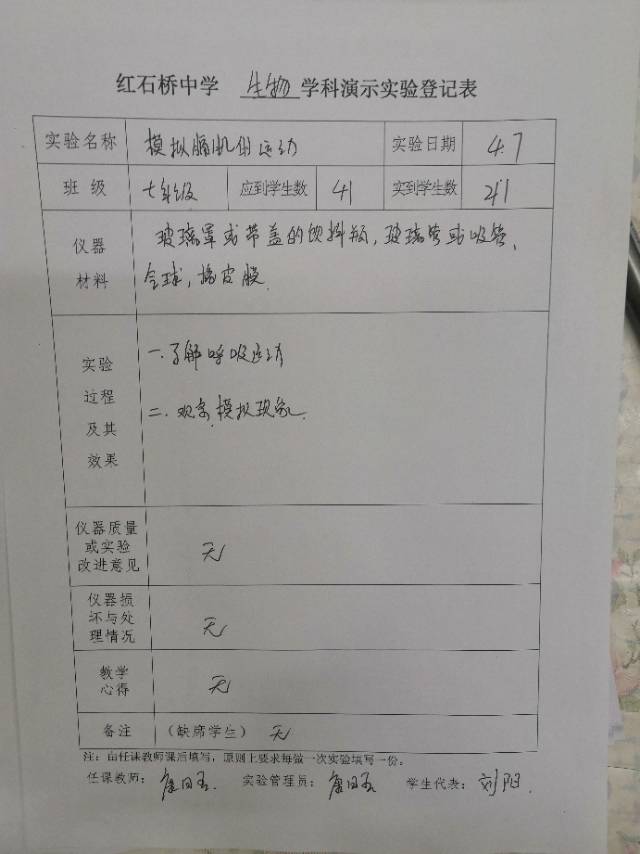 红石桥中学 生物 学科演示实验登记表
实验名称 模拟膈肌的运动 实验日期 4.7
班 级 七年级 应到学生数 41 实到学生数 41
仪器 玻璃罩或带盖的饮料瓶，玻璃管或吸管、
材料 气球，橡皮膜.
实验 一.了解呼吸运动
过程
及其 二.观察模拟现象.
效果
仪器质量
或实验 无
改进意见
仪器损
坏与处 无
理情况
教学
心得 无
备注 （缺席学生） 无
注：由任课教师课后填写，原则上要求每做一次实验填写一份。
任课教师： 实验管理员： 学生代表：刘阳.